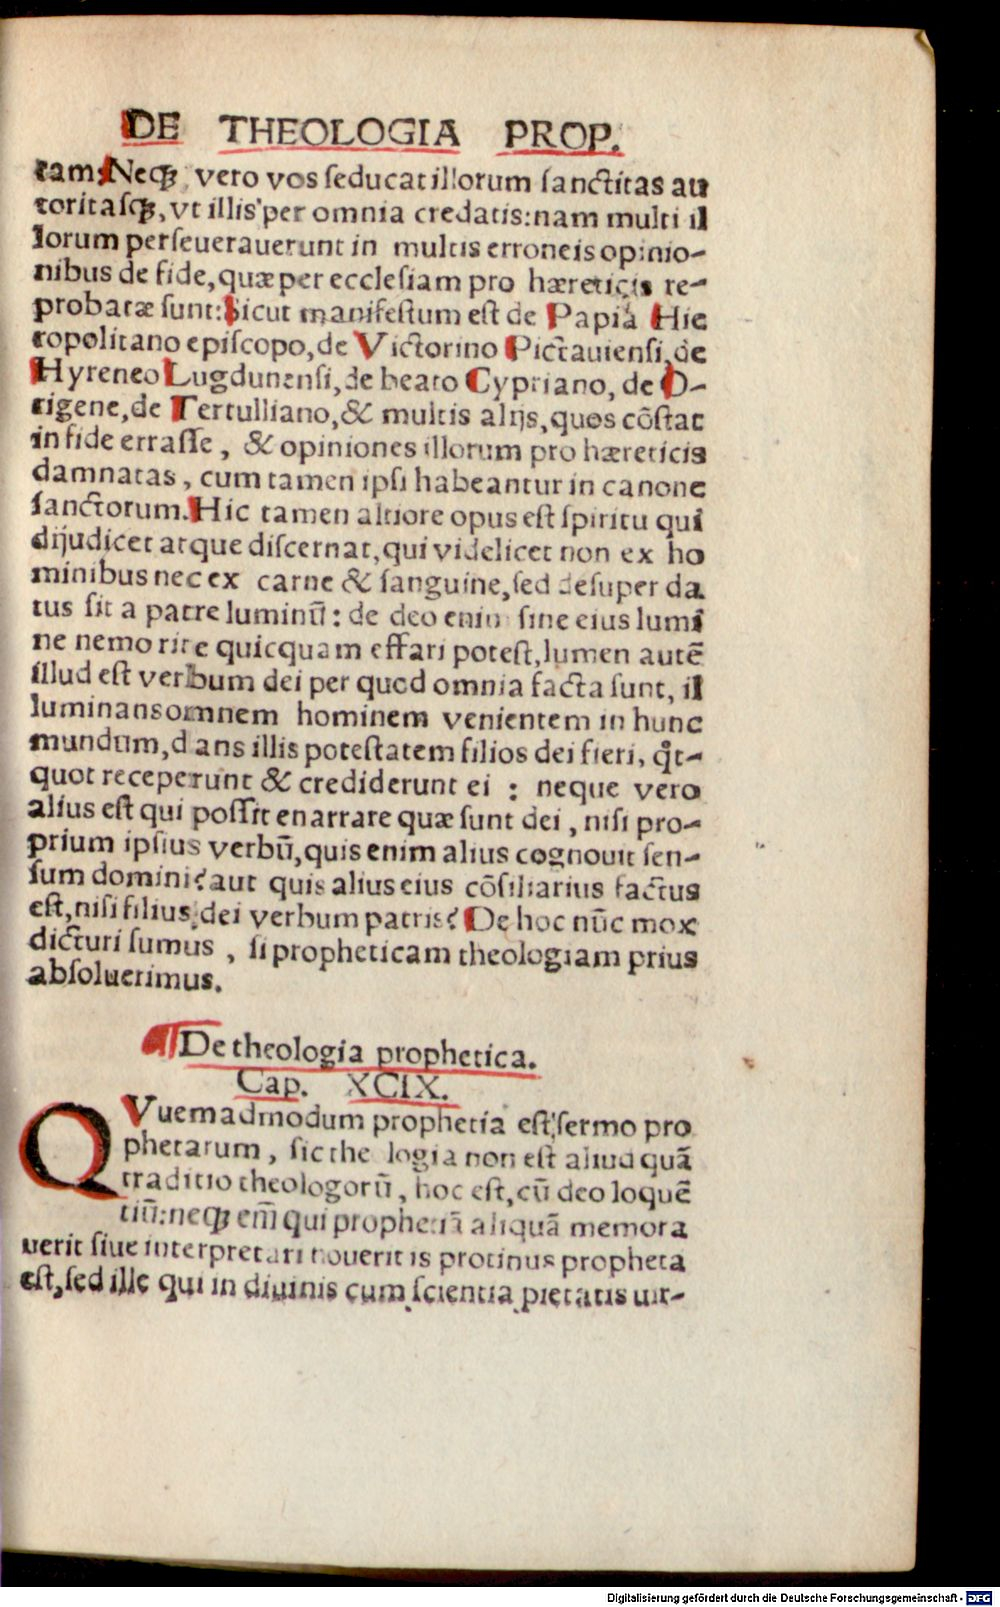 DE THEOLOGIA PROP.
tam. Neqꝫ vero vos seducat illorum sanctitas au
toritasqꝫ, vt illis per omnia credatis: nam multi il
lorum perseuerauerunt in multis erroneis opinio-
nibus de fide, quæ per ecclesiam pro hæreticis re-
probatæ sunt: Sicut manifestum est de Papia Hie
ropolitano episcopo, de Victorino Pictauiensi, de
Hyreneo Lugdunensi, de beato Cypriano, de O-
rigene, de Tertulliano, & multis alijs, quos cōstat
in fide errasse, & opiniones illorum pro hæreticis
damnatas, cum tamen ipsi habeantur in canone
sanctorum. Hic tamen altiore opus est spiritu qui
dijudicet atque discernat, qui videlicet non ex ho
minibus nec ex carne & sanguine, sed desuper da
tus sit a patre luminū: de deo enim sine eius lumi
ne nemo rite quicquam effari potest, lumen autē
illud est verbum dei per quod omnia facta sunt, il
luminans omnem hominem venientem in hunc
mundum, dans illis potestatem filios dei fieri, qͦt-
quot receperunt & crediderunt ei : neque vero
alius est qui possit enarrare quæ sunt dei, nisi pro-
prium ipsius verbū, quis enim alius cognouit sen-
sum domini? aut quis alius eius cōsiliarius factus
est, nisi filius dei verbum patris? De hoc nūc mox
dicturi sumus, si propheticam theologiam prius
absoluerimus.
¶ De theologia prophetica.
Cap. XCIX.
QVuemadmodum prophetia est sermo pro
phetarum, sic the logia non est aliud quā
traditio theologorū, hoc est, cū deo loquē
tiū: neqꝫ em̄ qui prophetiā aliquā memora
uerit siue interpretari nouerit is protinus propheta
est, sed ille qui in diuinis cum scientia pietatis uir-
Digitalisierung gefördert durch die Deutsche Forschungsgemeinschaft - DFG